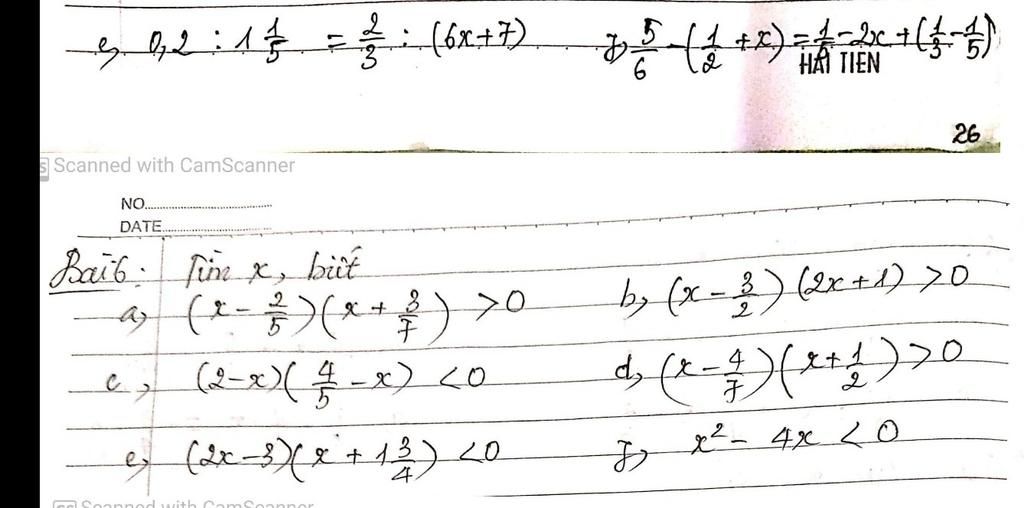 e, 0,2 : 1 1/5 = 2/3 : (6x+7) f, 5/6 - (1/2 + x) = 1/5 - 2x + (1/3 - 1/5)
HẢI TIEN
26
CS Scanned with CamScanner
NO.
DATE
Bài 6: Tìm x, biết
a, (x - 2/5)(x + 3/7) > 0 b, (x - 3/2)(2x + 1) > 0
c, (2-x)(4/5 - x) < 0 d, (x - 4/7)(x + 1/2) > 0
e, (2x-3)(x + 1 3/4) < 0 f, x² - 4x < 0
CS Scanned with CamScanner